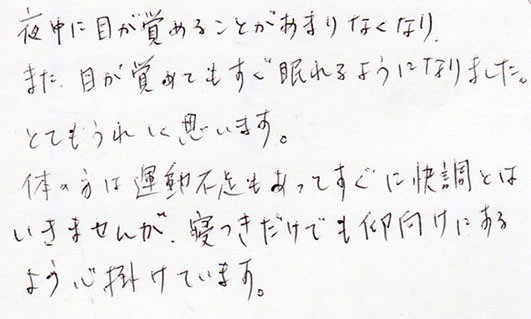 夜中に目が覚めることがあまりなくなり、
また、目が覚めてもすぐ眠れるようになりました。
とてもうれしく思います。
体の方は運動不足もあってすぐに快調とは
いきませんが、寝つきだけでも仰向けにある
よう心掛けています。